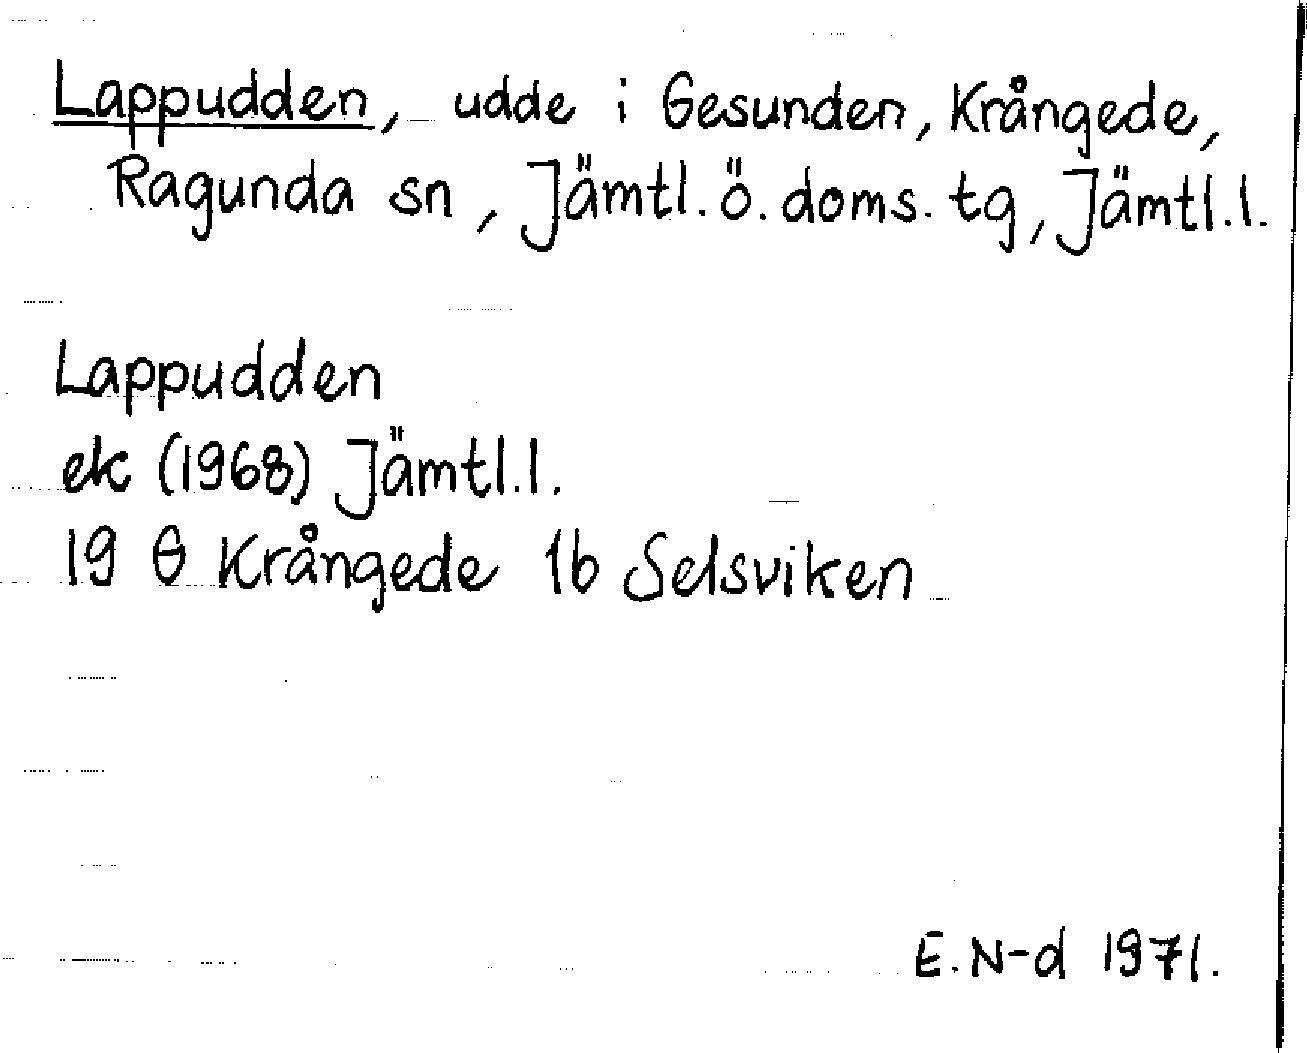 Lappudden, udde i Gesunden, Krångede,
Ragunda sn, Jämtl. ö. doms. tg, Jämtl. l.
Lappudden
ek (1968) Jämtl. l.
19 G Krångede 1b Selsviken
E. N-d 1971.